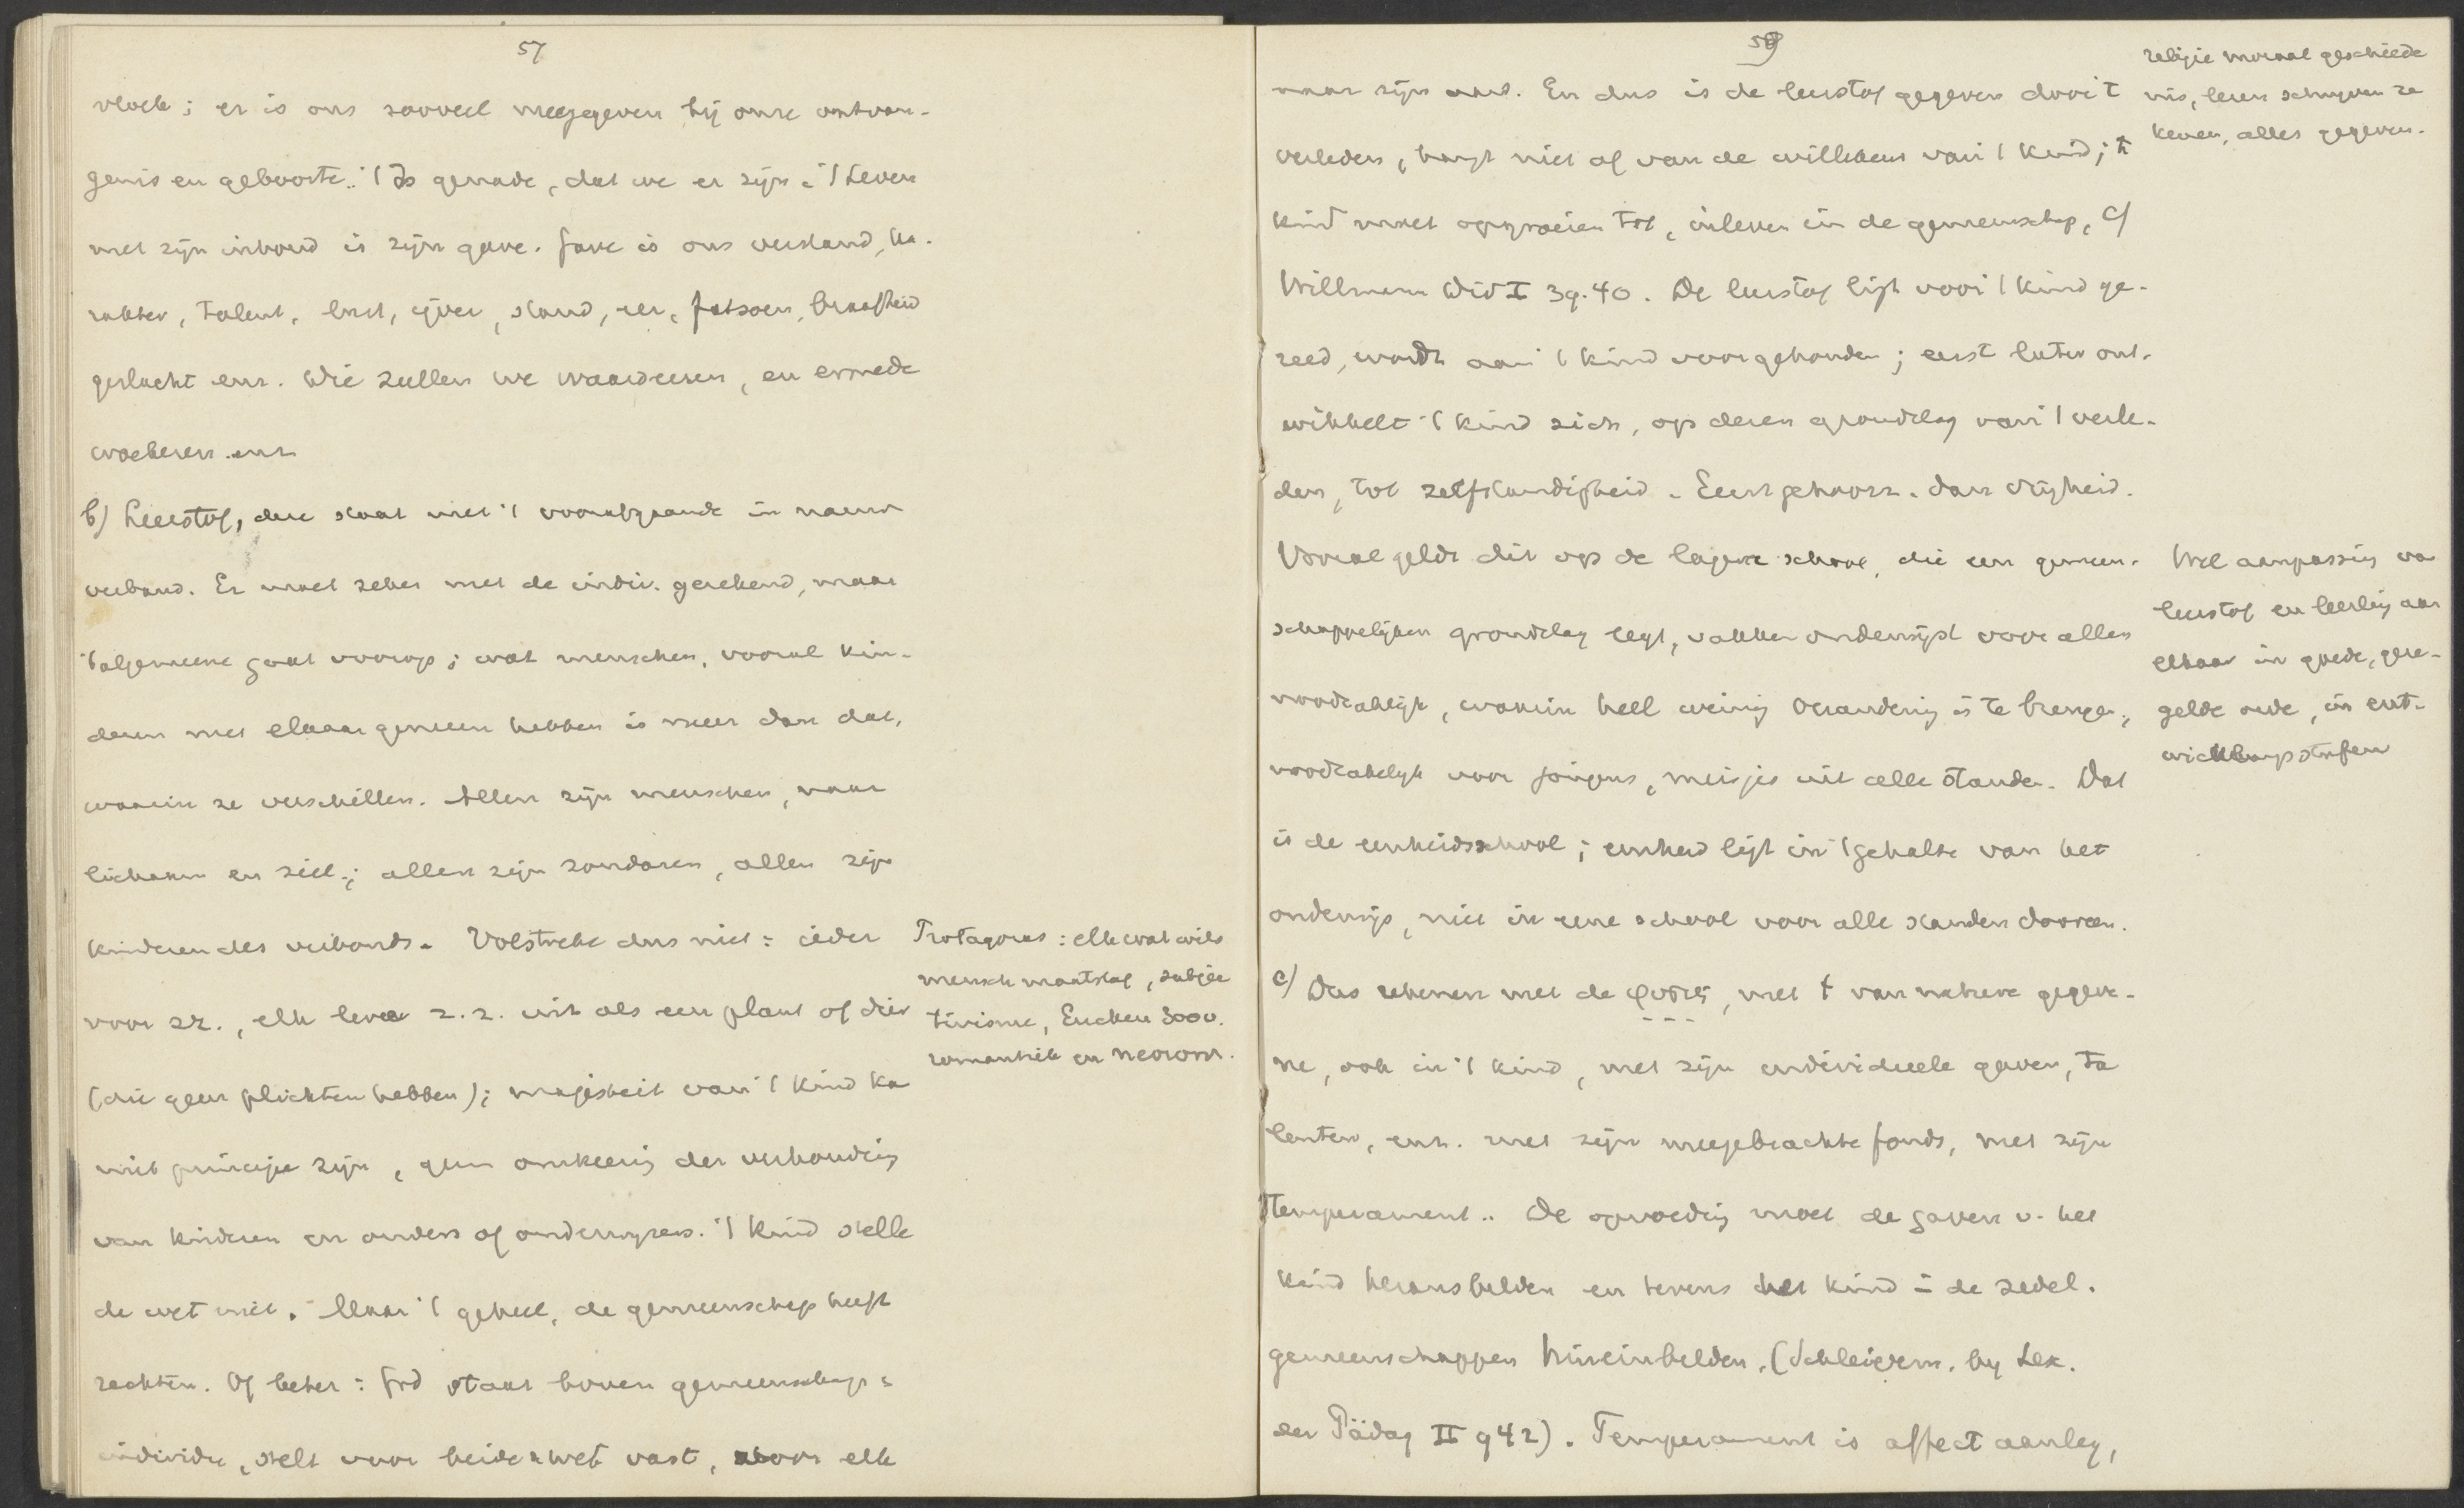 57
vloek; er is ons zooveel meegegeven bij onze ontvan-
genis en geboorte. 't Is genade, dat we er zijn. 't Leven
met zijn inhoud is zijn gave. Gave is ons verstand, ka-
rakter, talent, lust, ijver, stand, eer, fatsoen, braafheid
geslacht enz. Die zullen we waardeeren, en ermede
woekeren enz.
b) Leerstof, deze staat met 't voorafgaande in nauw
verband. Er moet zeker met de indiv. gerekend, maar
't algemeene gaat voorop; wat menschen, vooral kin-
deren met elkaar gemeen hebben is meer dan dat,
waarin ze verschillen. Allen zijn menschen, naar
lichaam en ziel; allen zijn zondaren, allen zijn
kinderen des verbonds. Volstrekt dus niet: ieder
voor zz., elk leve z.z. uit als een plant of dier
(die geen plichten hebben); majesteit van 't kind ka
niet principe zijn, geen omkeering der verhouding
van kinderen en ouders of onderwijzers. 't Kind stelle
de wet niet. Maar 't geheel, de gemeenschap heeft
rechten. Of beter: God staat boven gemeenschap =
individu, stelt voor beide wet vast, voor elk
Protagoras: elk wat wils
mensch maatstaf, subjec
tivisme, Eucken 300v.
romantiek en neorom.
59
naar zijn aard. En dus is de leerstof gegeven door t
verleden, hangt niet af van de willekeur van 't kind; t
kind moet opgroeien tot, inleven in de gemeenschap, cf
Willmann Did I 39.40. De leerstof ligt voor 't kind ge-
reed, wordt aan 't kind voorgehouden; eerst later ont-
wikkelt 't kind zich, op dezen grondslag van 't verle-
den, tot zelfstandigheid. Eerst gehoorz. dan vrijheid.
Vooral geldt dit op de lagere school, die een gemeen-
schappelijken grondslag legt, vakken onderwijst voor allen
noodzakelijk, waarin heel weinig verandering is te brengen,
noodzakelijk voor jongens, meisjes uit alle standen. Dat
is de eenheidsschool; eenheid ligt in 't gehalte van het
onderwijs, niet in eene school voor alle standen dooreen.
c) Dus rekenen met de φυσις, met t van nature gegeve-
ne, ook in 't kind, met zijn individueele gaven, ta
lenten, enz. met zijn meegebrachte fonds, met zijn
temperament.. De opvoeding moet de gaven v. het
kind herausbilden en tevens het kind in de zedel.
gemeenschappen hineinbilden. (Schleierm. by Lex.
der Pädag II 942). Temperament is affect aanleg,
religie moraal geschiede
nis, lezen schrijven re
kenen, alles gegeven.
Wel aanpassing va
leerstof en leerling aan
elkaar in goede, gere-
gelde orde, in ent-
wicklungsstufen